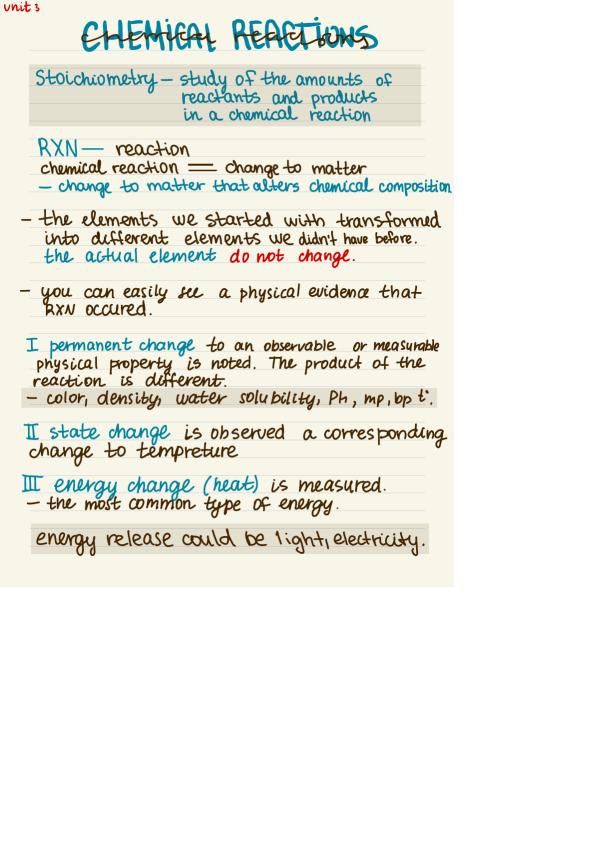 Unit 3
CHEMICAL REACTIONS
chemical reactions
Stoichiometry — study of the amounts of
reactants and products
in a chemical reaction
RXN — reaction
chemical reaction = change to matter
- change to matter that alters chemical composition
- the elements we started with transformed
into different elements we didn't have before.
the actual element do not change.
- you can easily see a physical evidence that
RXN occured.
I permanent change to an observable or measurable
physical property is noted. The product of the
reaction is different.
- color, density, water solubility, Ph, mp, bp t°.
II state change is observed a corresponding
change to tempreture
III energy change (heat) is measured.
- the most common type of energy.
energy release could be light, electricity.